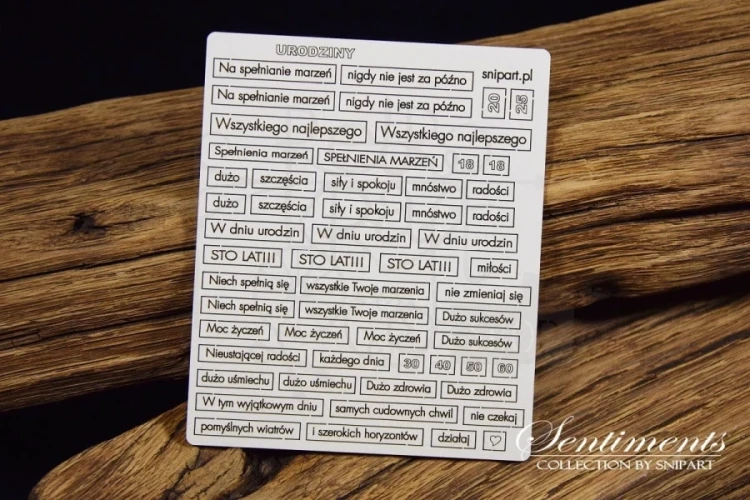 URODZINY
Na spełnianie marzeń nigdy nie jest za późno snipart.pl
Na spełnianie marzeń nigdy nie jest za późno 20 25
Wszystkiego najlepszego Wszystkiego najlepszego
Spełnienia marzeń SPEŁNIENIA MARZEŃ 18 18
dużo szczęścia siły i spokoju mnóstwo radości
dużo szczęścia siły i spokoju mnóstwo radości
W dniu urodzin W dniu urodzin W dniu urodzin
STO LAT!!! STO LAT!!! STO LAT!!! miłości
Niech spełnią się wszystkie Twoje marzenia nie zmieniaj się
Niech spełnią się wszystkie Twoje marzenia Dużo sukcesów
Moc życzeń Moc życzeń Moc życzeń Dużo sukcesów
Nieustającej radości każdego dnia 30 40 50 60
dużo uśmiechu dużo uśmiechu Dużo zdrowia Dużo zdrowia
W tym wyjątkowym dniu samych cudownych chwil nie czekaj
pomyślnych wiatrów i szerokich horyzontów działaj
Sentiments
COLLECTION BY SNIPART